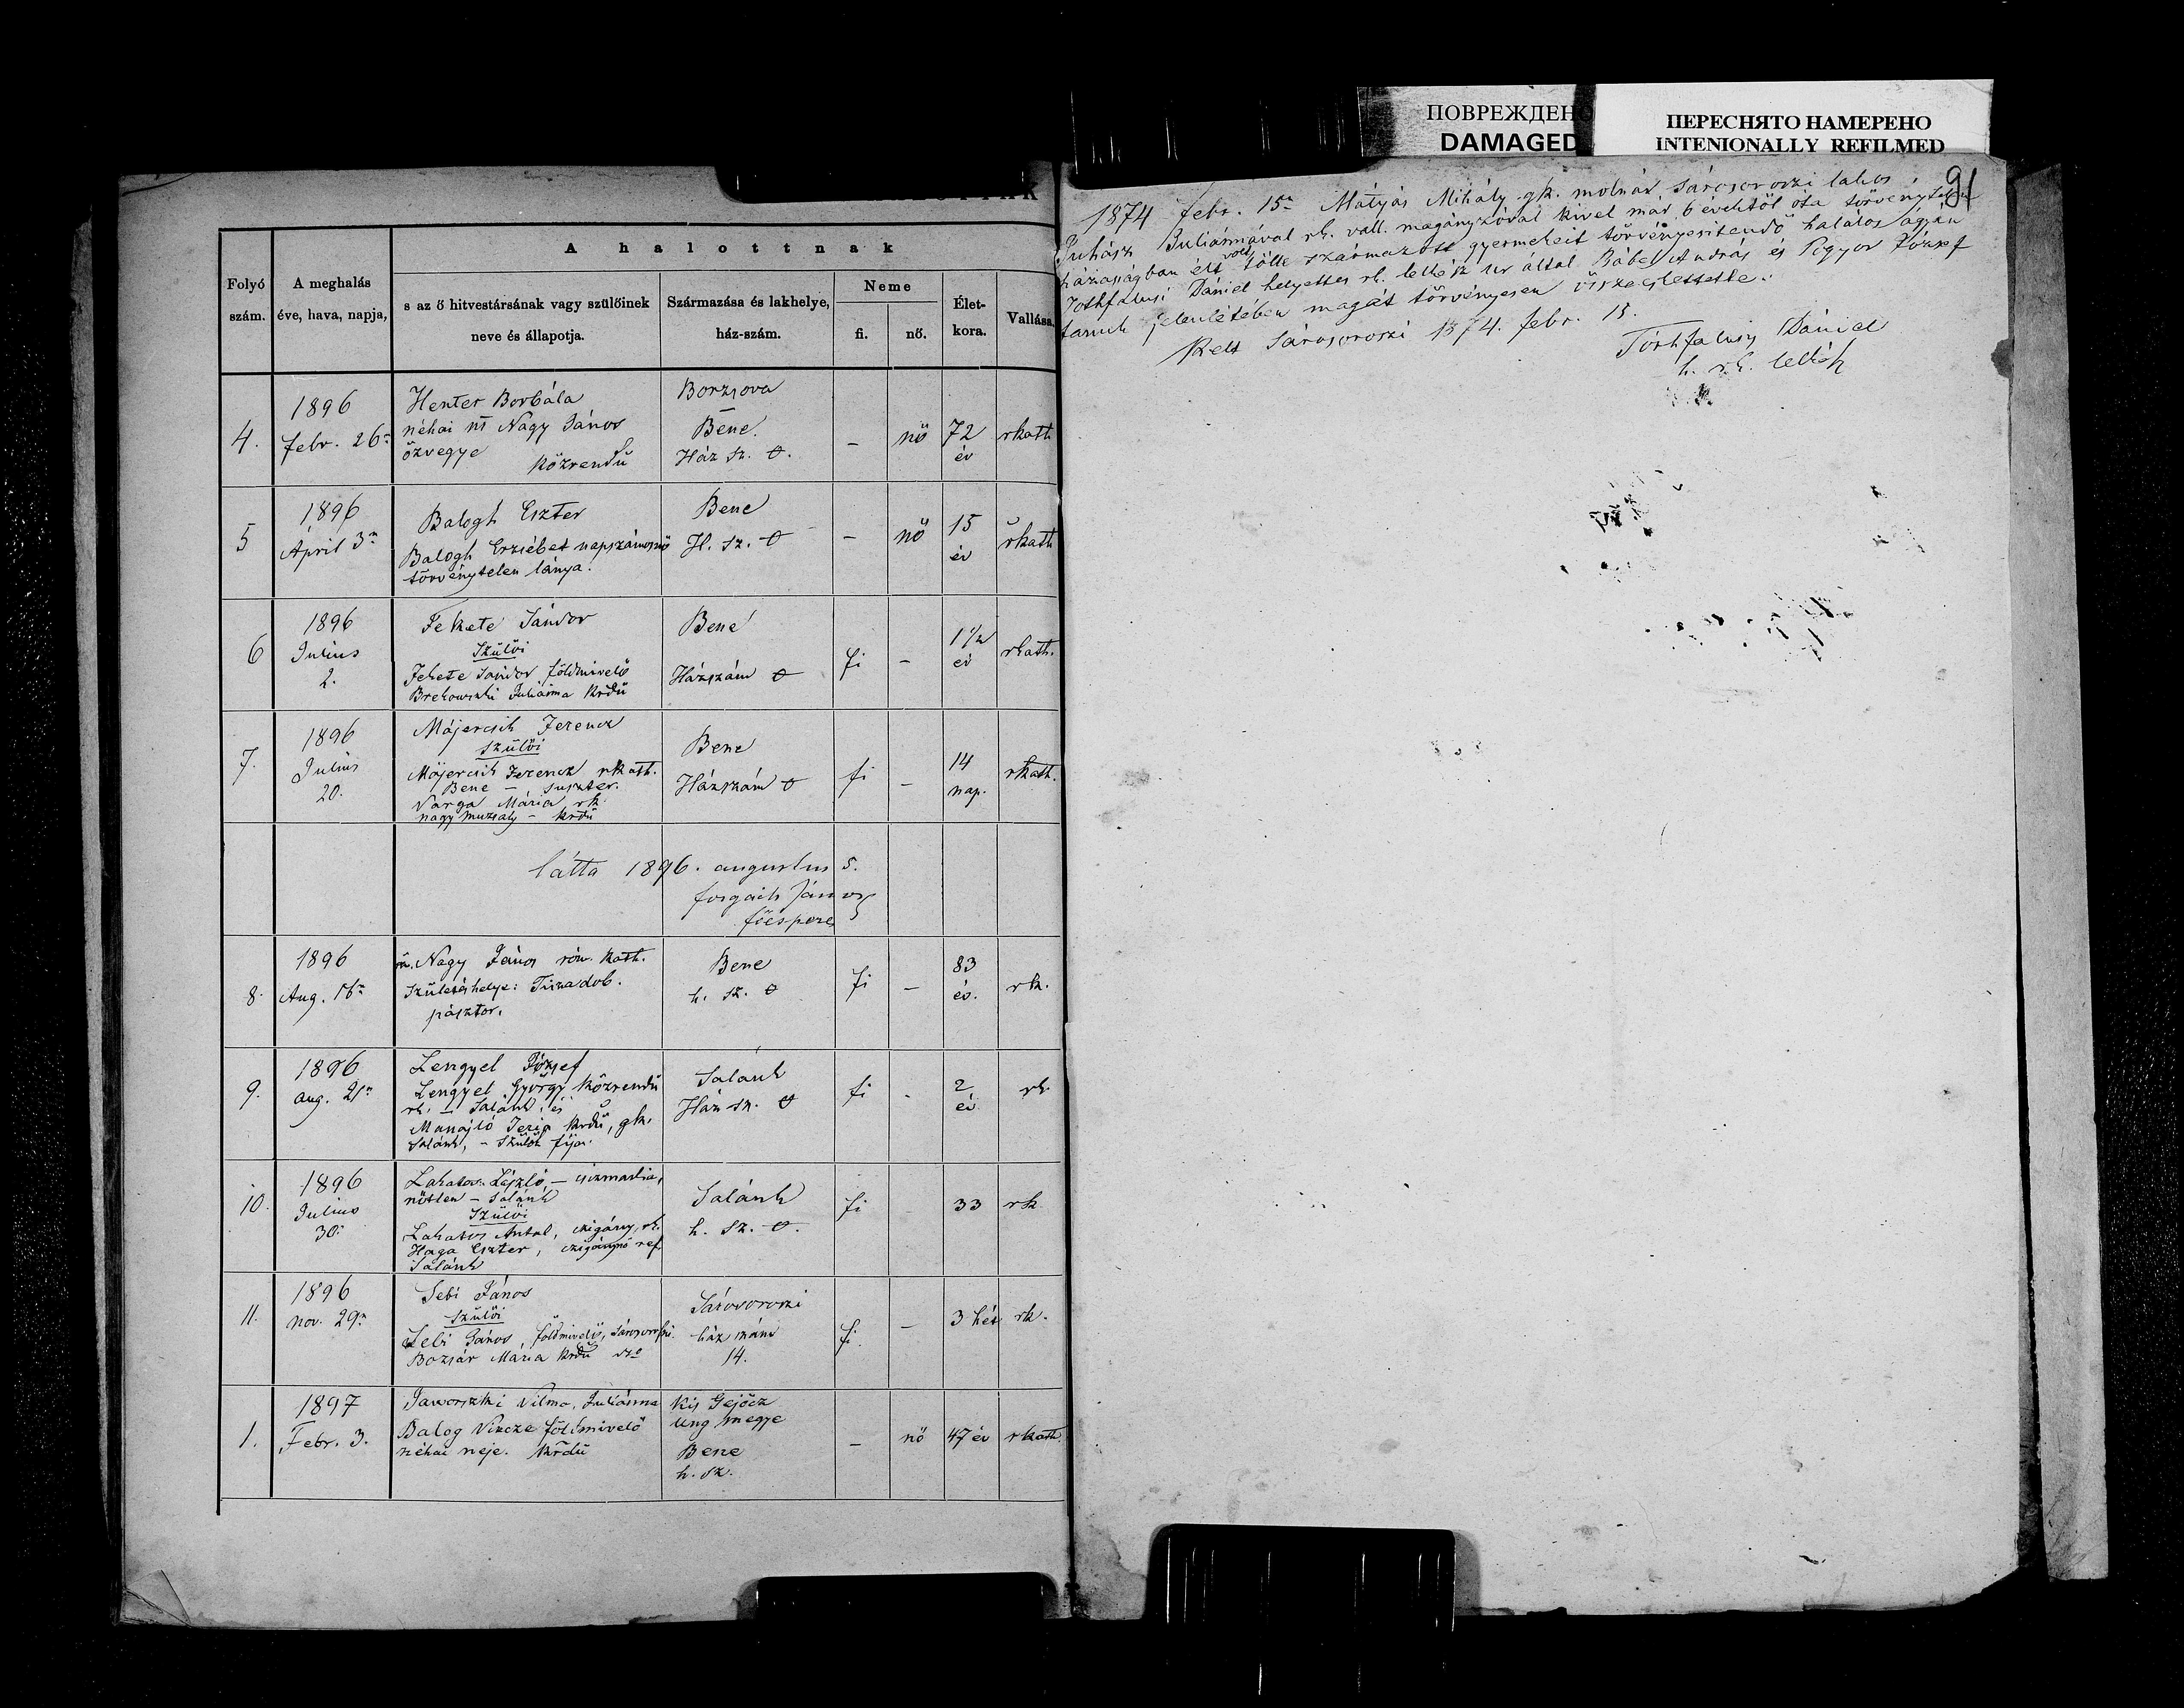 ПОВРЕЖДЕНО
DAMAGED
ПЕРЕСНЯТО НАМЕРЕНО
INTENIONALLY REFILMED
A halottnak
Folyó szám.
A meghalás éve, hava, napja,
s az ő hitvestársának vagy szülőinek neve és állapotja.
Származása és lakhelye, ház-szám.
Neme
fi.
nő.
Élet-kora.
Vallása.
4.
1896
febr. 26n
Henter Borbála
néhai ns Nagy János
özvegye közrendű
Borzsova
Bene
Ház sz. 0.
–
nő
72
év
rkath
5
1896
April 3n
Balogh Eszter
Balogh Erzsébet napszámosnő
törvénytelen lánya.
Bene
H. sz. 0
–
nő
15
év
rkath
6
1896
Julius
2.
Fekete Sándor
Szülői
Fekete Sándor földmivelő
Brekowszki Juliánna krdű
Bene
Házszám 0
fi
–
1 1/2
év
rkath.
7.
1896
Julius
20.
Májercsik Ferencz
Szülői
Májercsik Ferencz rkath.
Bene – suszter.
Varga Mária rk.
nagy muzsaly – krdű
Bene
Házszám 0
fi
–
14
nap.
rkath.
látta 1896. augustus 5.
forgách János
főesperes
8.
1896
Aug. 15n
Nagy János róm. kath.
Születéshelye: Tiszadob.
pásztor.
Bene
h. sz. 0
fi
–
83
év.
rk.
9.
1896
aug. 21n
Lengyel József
Lengyel György közrendű
rk. – Salánk és
Manajló Terza krdű, gk.
Salánk, – Szülők fija.
Salánk
Ház sz. 0
fi
-
2
év
rk
10.
1896
Julius
30.
Lakatos László – csizmadia,
nőtlen – Salánk
Szülői
Lakatos Antal, czigány, rk.
Haga Eszter, czigánynő ref
Salánk
Salánk
h. sz. 0.
fi
33
rk
11.
1896
nov. 29n
Lebi János
Szülői
Lebi János, földmivelő, Sárosoroszi.
Bozsár Mária krdű
Sárosoroszi
ház szám
14.
fi.
–
3 hét
rk.
1.
1897
Febr. 3.
Jaworszki Vilma, Juliánna
Balog Vincze földmivelő
néhai neje. krdű
Kis Gejőcz
Ung megye
Bene
h. sz.
–
nő
47 év
rkath.
91
1874 febr. 15n Mátyás Mihály gk. molnár Sárosoroszi lakos
Juhász Juliánnával rk. vall. magányzóval kivel már 6 évektől óta törvénytelen
háziasságban élt volt, tőlle származott gyermekeit törvényesitendő halálos ágyán
Tóthfalusi Dániel helyettes rk. lelkész úr által Bábel András és Pogyor József
tanuk jelenlétében magát törvényesen összeeskettette.
Kelt Sárosoroszi 1874. febr. 15.
Tóthfalusy Dániel
h. rk. lelkész